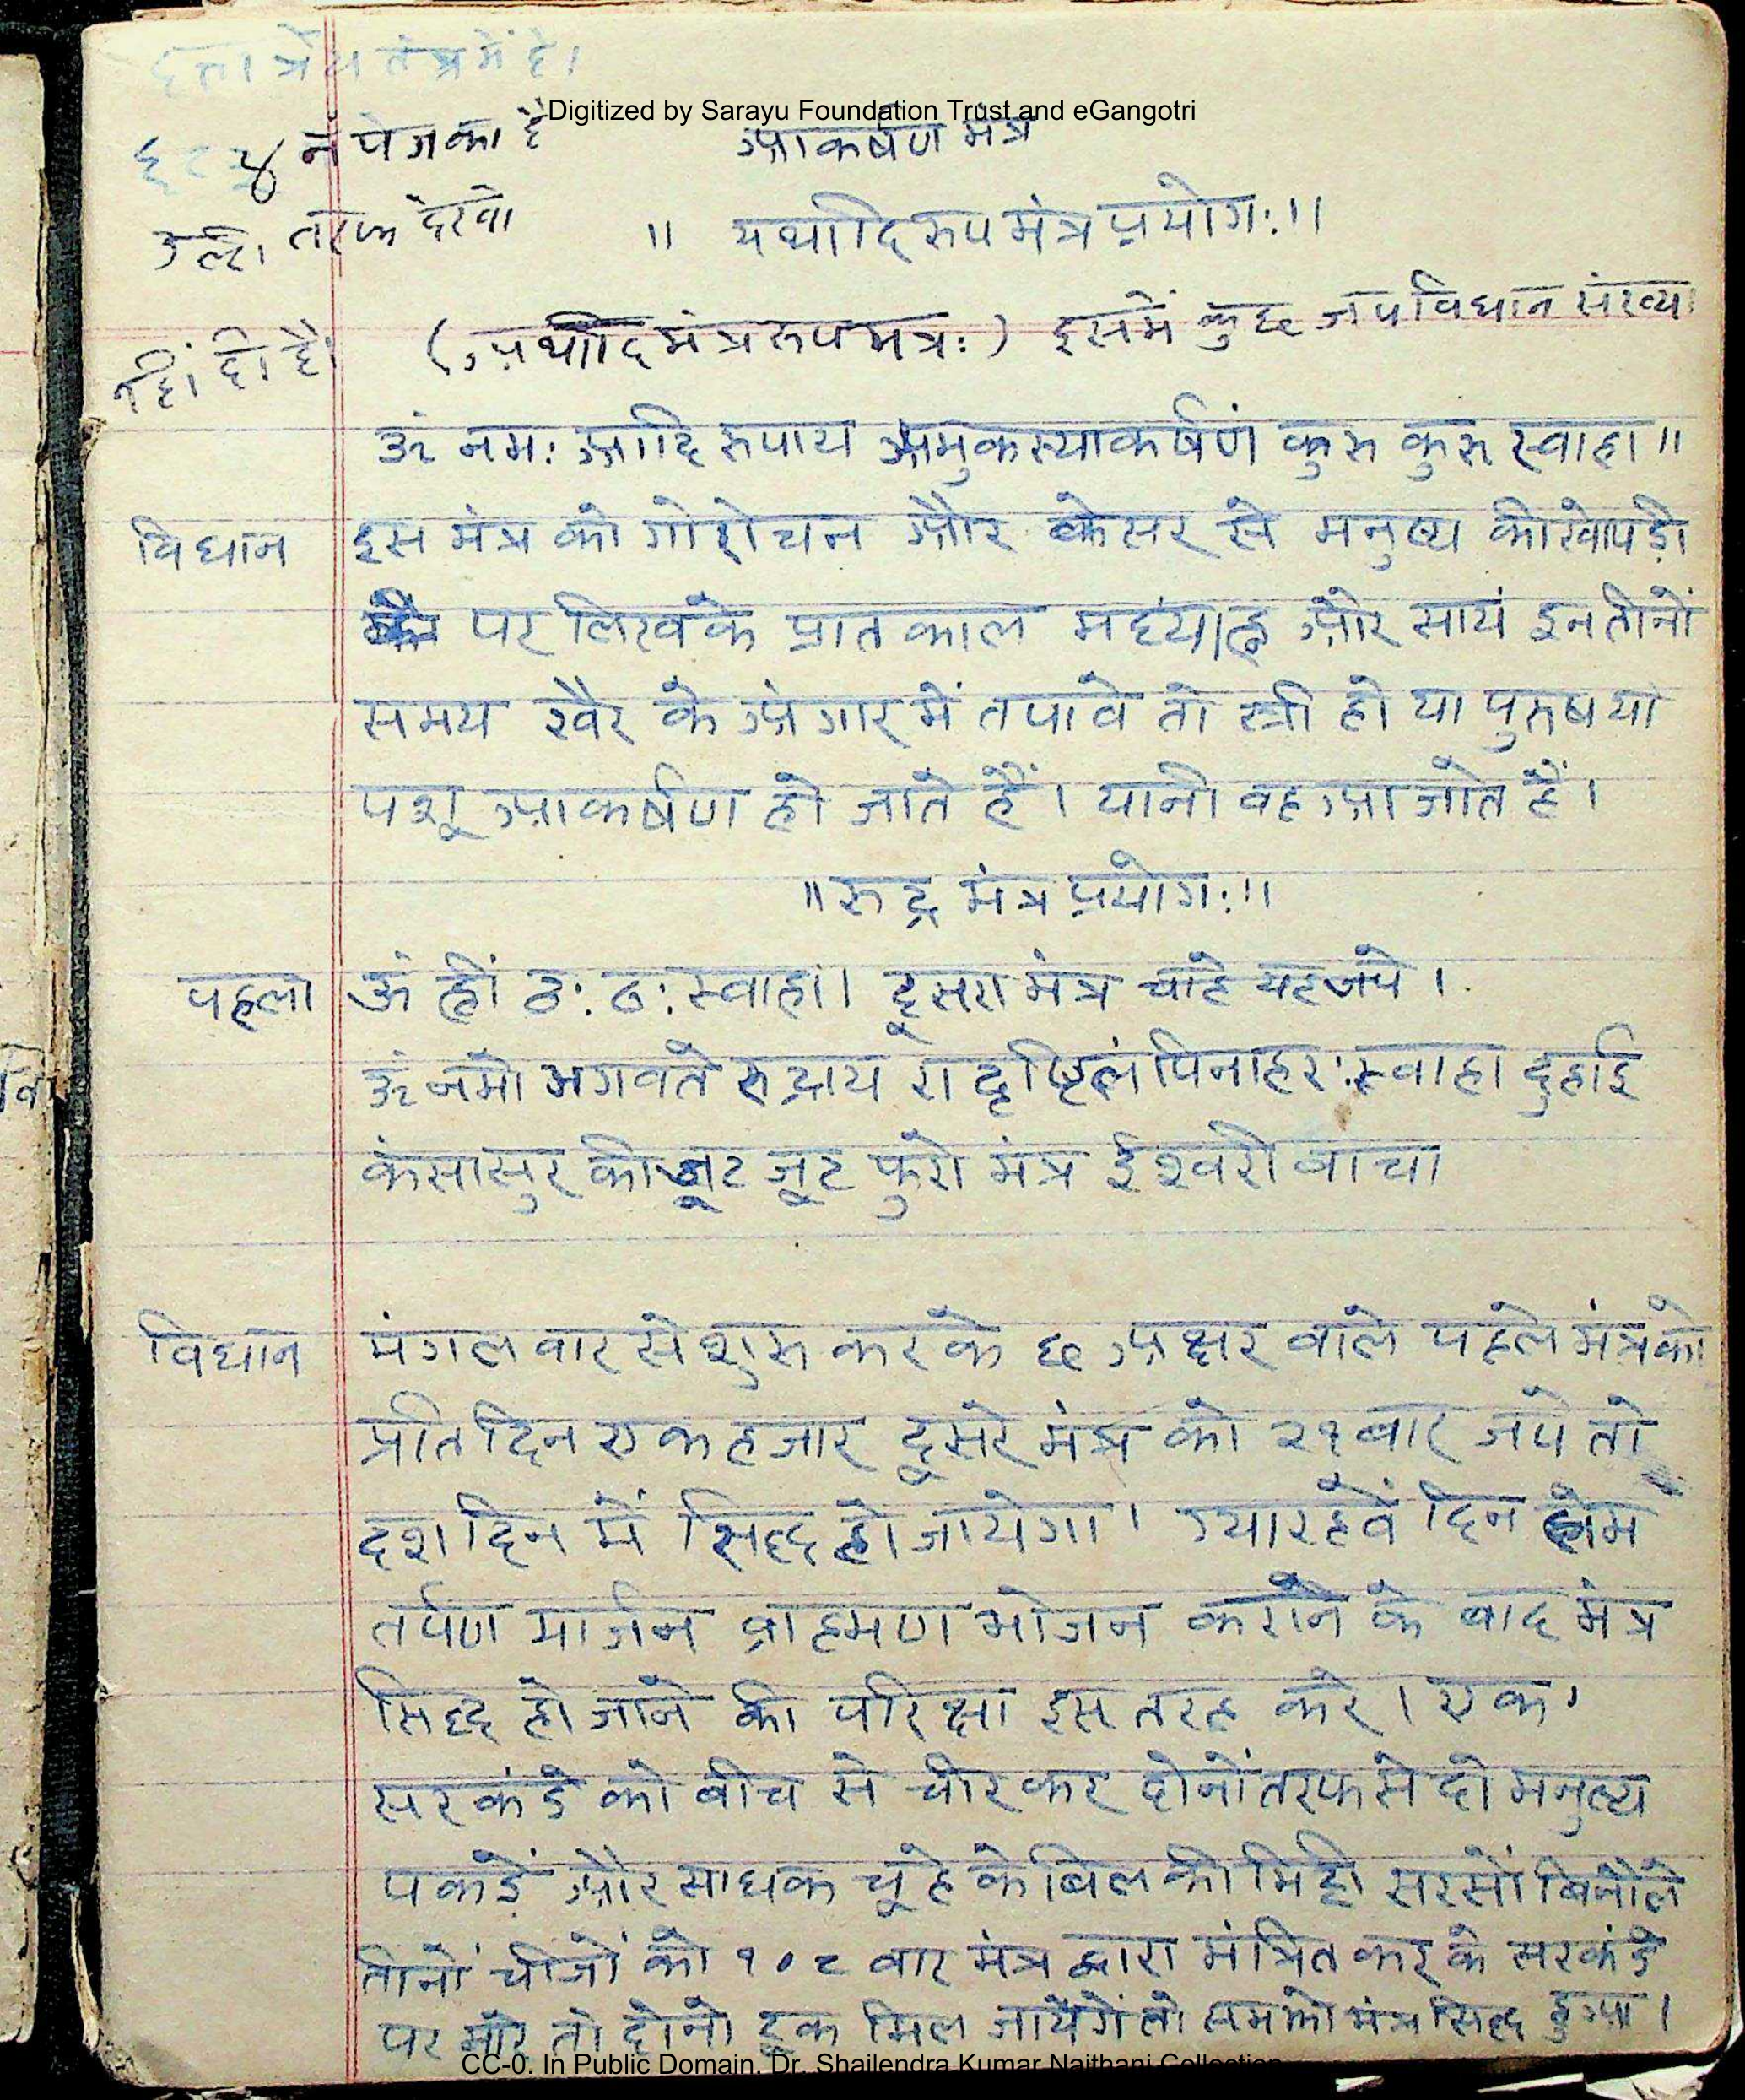 दत्तात्रेय तंत्र में है।
Digitized by Sarayu Foundation Trust and eGangotri
न पेज का है आकर्षण मंत्र
उल्टा तरफ देखो ॥ यथादि रुप मंत्र प्रयोग:॥
(अथादि मंत्र रुप मंत्र:) इसमें कुछ जप विधान संख्या
नहिं दी है।
ॐ नम: आदि रुपाय अमुकस्याकर्षणं कुरु कुरु स्वाहा॥
विधान इस मंत्र को गोरोचन और केसर से मनुष्य की खोपड़ी
पर लिखके प्रातकाल मध्याह्न और सायं इन तीनों
समय खैर के अंगार में तपावे तो स्त्री हो या पुरुष या
पशू आकर्षण हो जाते हैं। यानी वह आ जाते हैं।
॥रुद्र मंत्र प्रयोग:॥
पहला ॐ ह्रीं ठ: ठ: स्वाहा। दूसरा मंत्र चाहे यह जपे।
ॐ नमो भगवते रुद्राय रा दृष्टिलं पिनाहर: स्वाहा दुहाई
कंसासुर की जूट जूट फुरो मंत्र ईश्वरो वाचा
विधान मंगलवार से शुरु करके ६ अक्षर वाले पहले मंत्र को
प्रतिदिन एक हजार दूसरे मंत्र को २१ बार जपे तो
दश दिन में सिद्ध हो जायेगा। ग्यारहवें दिन होम
तर्पण मार्जन ब्राहमण भोजन कराने के बाद मंत्र
सिद्ध हो जाने की परिक्षा इस तरह करे। एक
सरकंडे को बीच से चीरकर दोनों तरफ से दो मनुष्य
पकड़ें और साधक चूहे के बिल की मिट्टी सरसों बिनौले
तीनों चीजों को १०८ वार मंत्र द्वारा मंत्रित करके सरकंडे
पर मारे तो दोनो टूक मिल जायेंगें तो समझो मंत्र सिद्ध हुआ।
CC-0. In Public Domain. Dr. Shailendra Kumar Naithani Collection